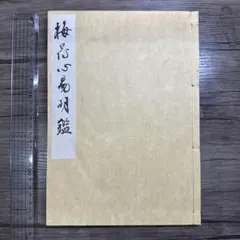 梅花心易明鑑